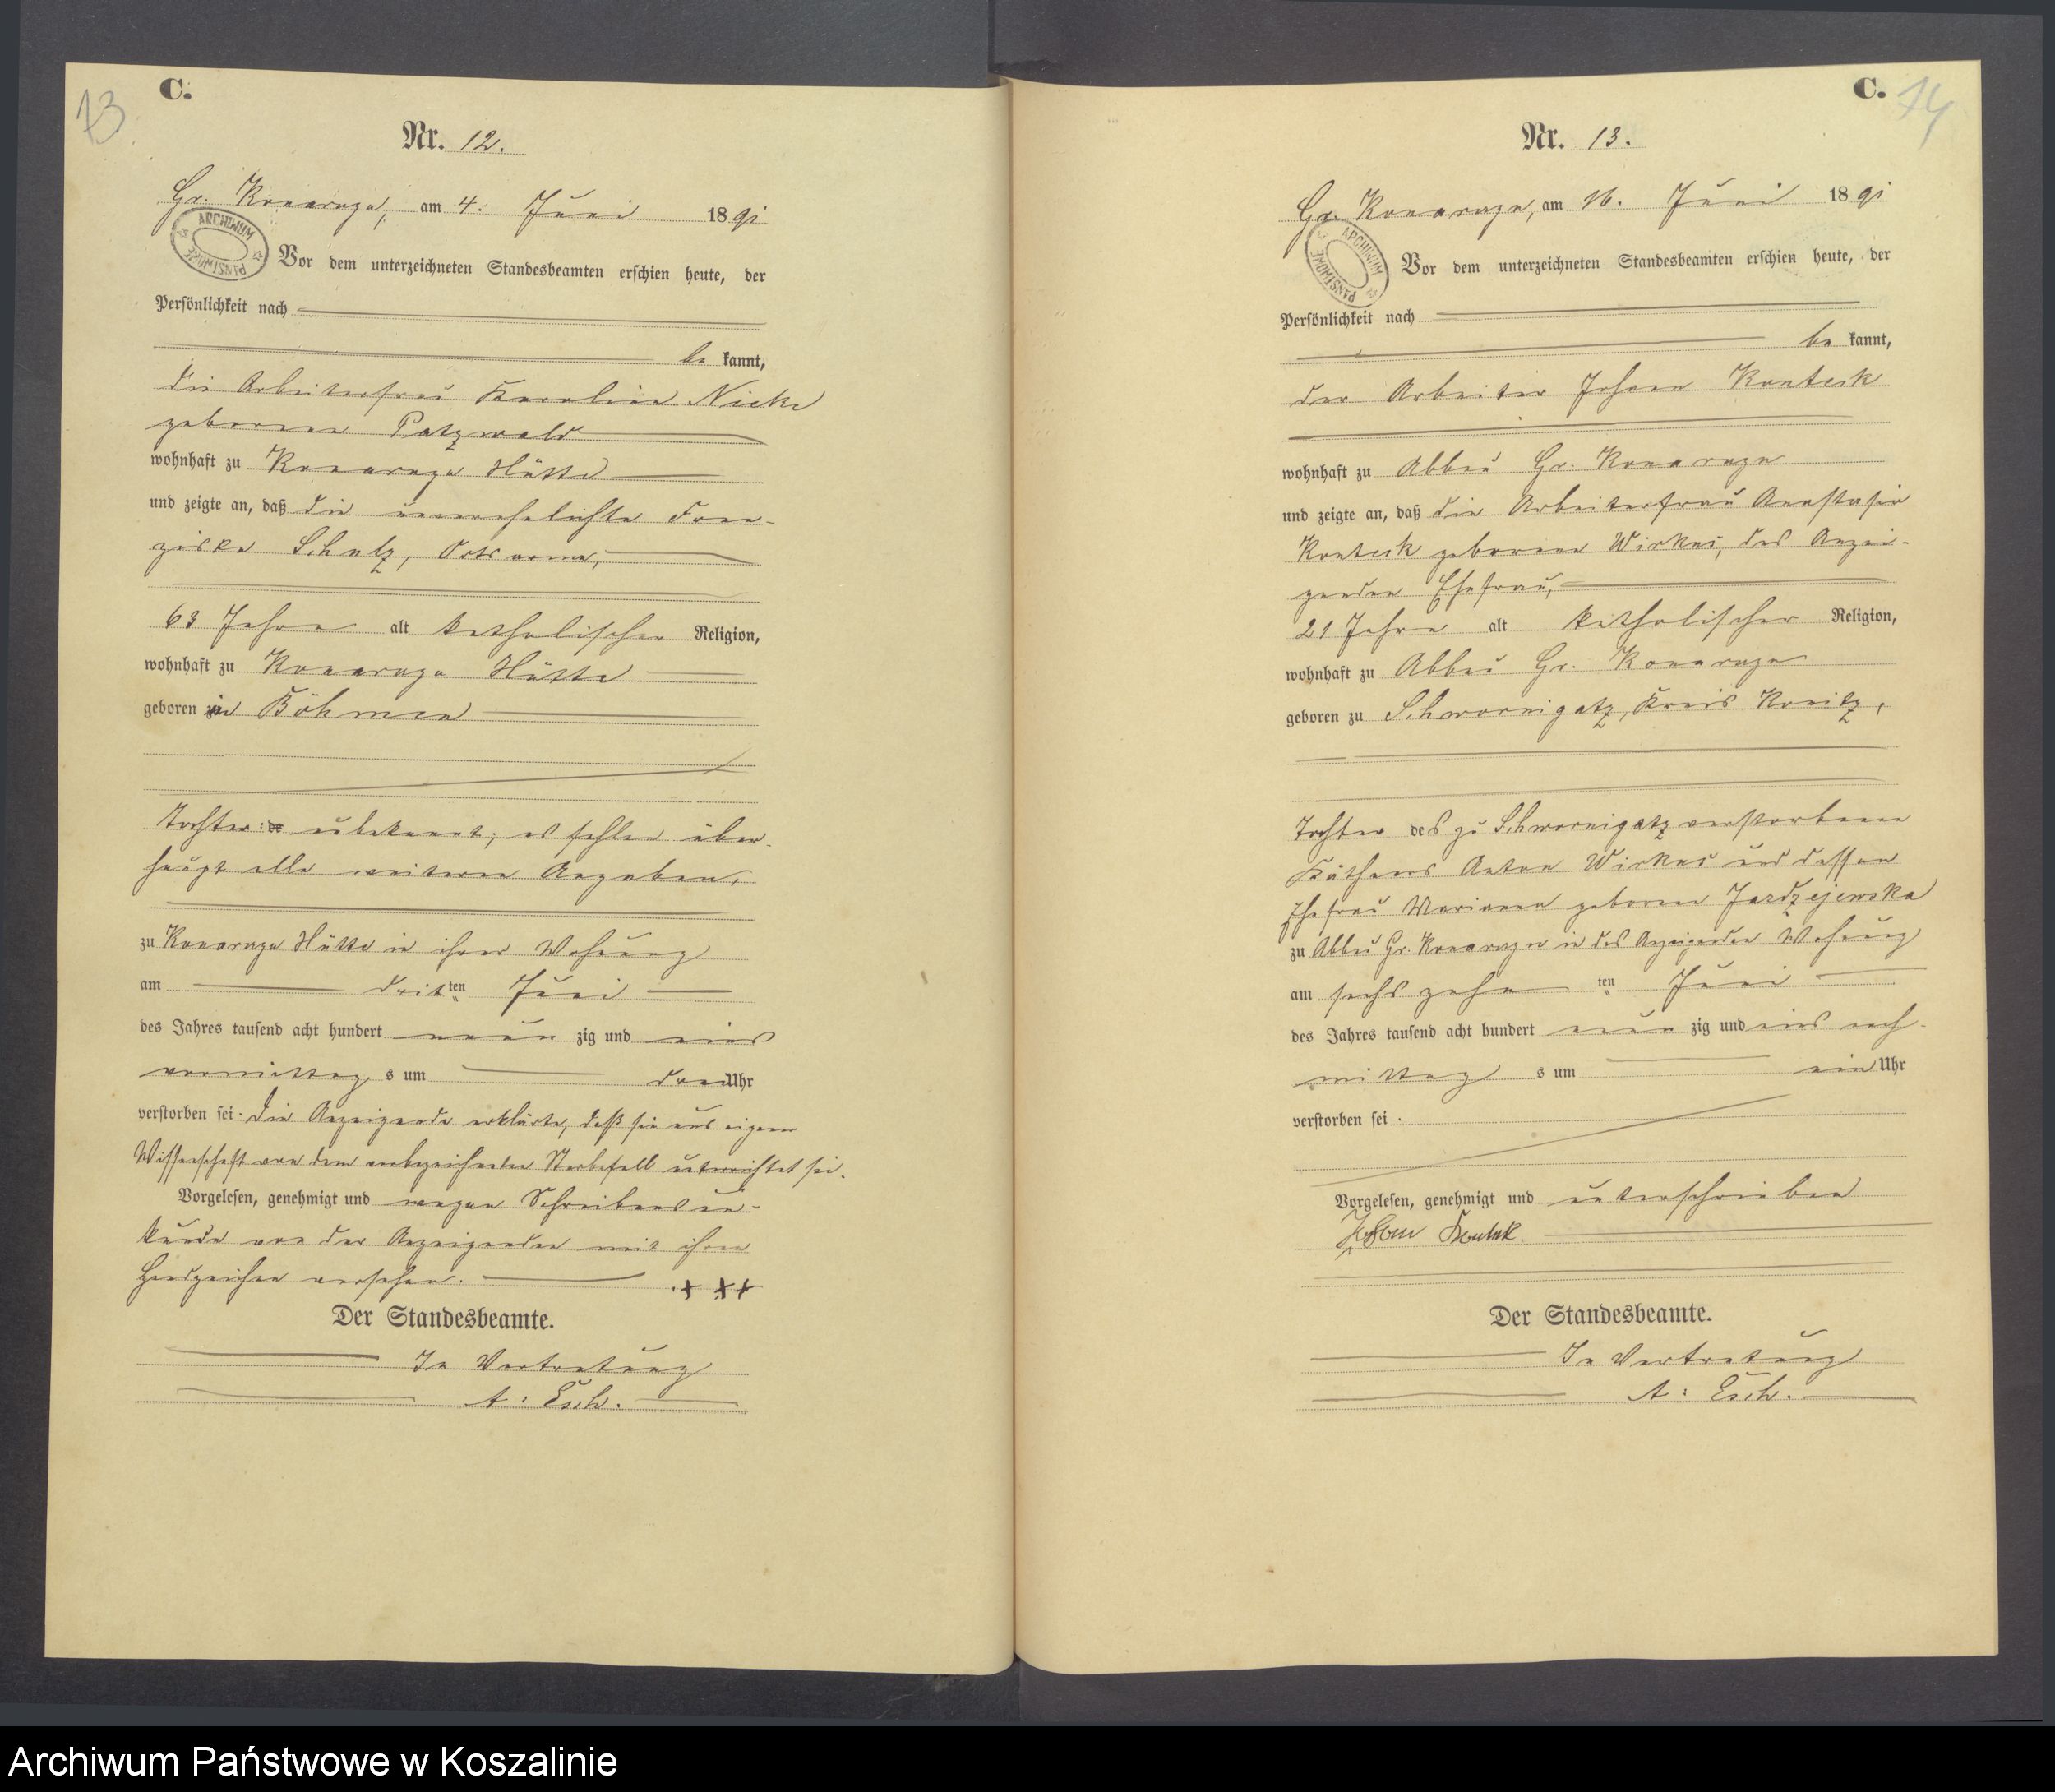 73
C.
Nr. 12.
Gr. Konarzyn, am 4. Juni 1891
ARCHIWUM PAŃSTWOWE
Vor dem unterzeichneten Standesbeamten erschien heute, der
Persönlichkeit nach
be kannt,
die Arbeiterfrau Karoline Nicke
geborene Patzwald
wohnhaft zu Konarzyn Hütte
und zeigte an, daß die unverehelichte Fran-
ziska Schulz, Ortsarme,
63 Jahre alt katholischer Religion,
wohnhaft zu Konarzyn Hütte
geboren in Böhmen
Tochter: unbekannt; es fehlen über-
haupt alle weiteren Angaben,
zu Konarzyn Hütte in ihrer Wohnung
am dritten Juni
des Jahres tausend acht hundert neun zig und eins
vormittag s um drei Uhr
verstorben sei. Die Anzeigende erklärte, daß sie aus eigener
Wissenschaft von dem vorbezeichneten Sterbefall unterrichtet sei.
Vorgelesen, genehmigt und wegen Schreibensun-
kunde von der Anzeigenden mit ihren
Handzeichen versehen. + ++
Der Standesbeamte.
In Vertretung
A: Esch.
C. 74
Nr. 13.
Gr. Konarzyn, am 16. Juni 1891
ARCHIWUM PAŃSTWOWE
Vor dem unterzeichneten Standesbeamten erschien heute, der
Persönlichkeit nach
be kannt,
der Arbeiter Johann Konteck
wohnhaft zu Abbau Gr. Konarzyn
und zeigte an, daß die Arbeiterfrau Anastasia
Konteck geborene Wirkus, des Anzei-
genden Ehefrau,
21 Jahre alt katholischer Religion,
wohnhaft zu Abbau Gr. Konarzyn
geboren zu Schwornigatz, Kreis Konitz,
Tochter des zu Schwornigatz verstorbenen
Käthners Anton Wirkus und dessen
Ehefrau Marianna geborene Jardzejewska
zu Abbau Gr. Konarzyn in des Anzeigenden Wohnung
am sechszehn ten Juni
des Jahres tausend acht hundert neun zig und eins nach-
mittag s um ein Uhr
verstorben sei.
Vorgelesen, genehmigt und unterschrieben
Johann
Der Standesbeamte.
In Vertretung
A: Esch.
Archiwum Państwowe w Koszalinie